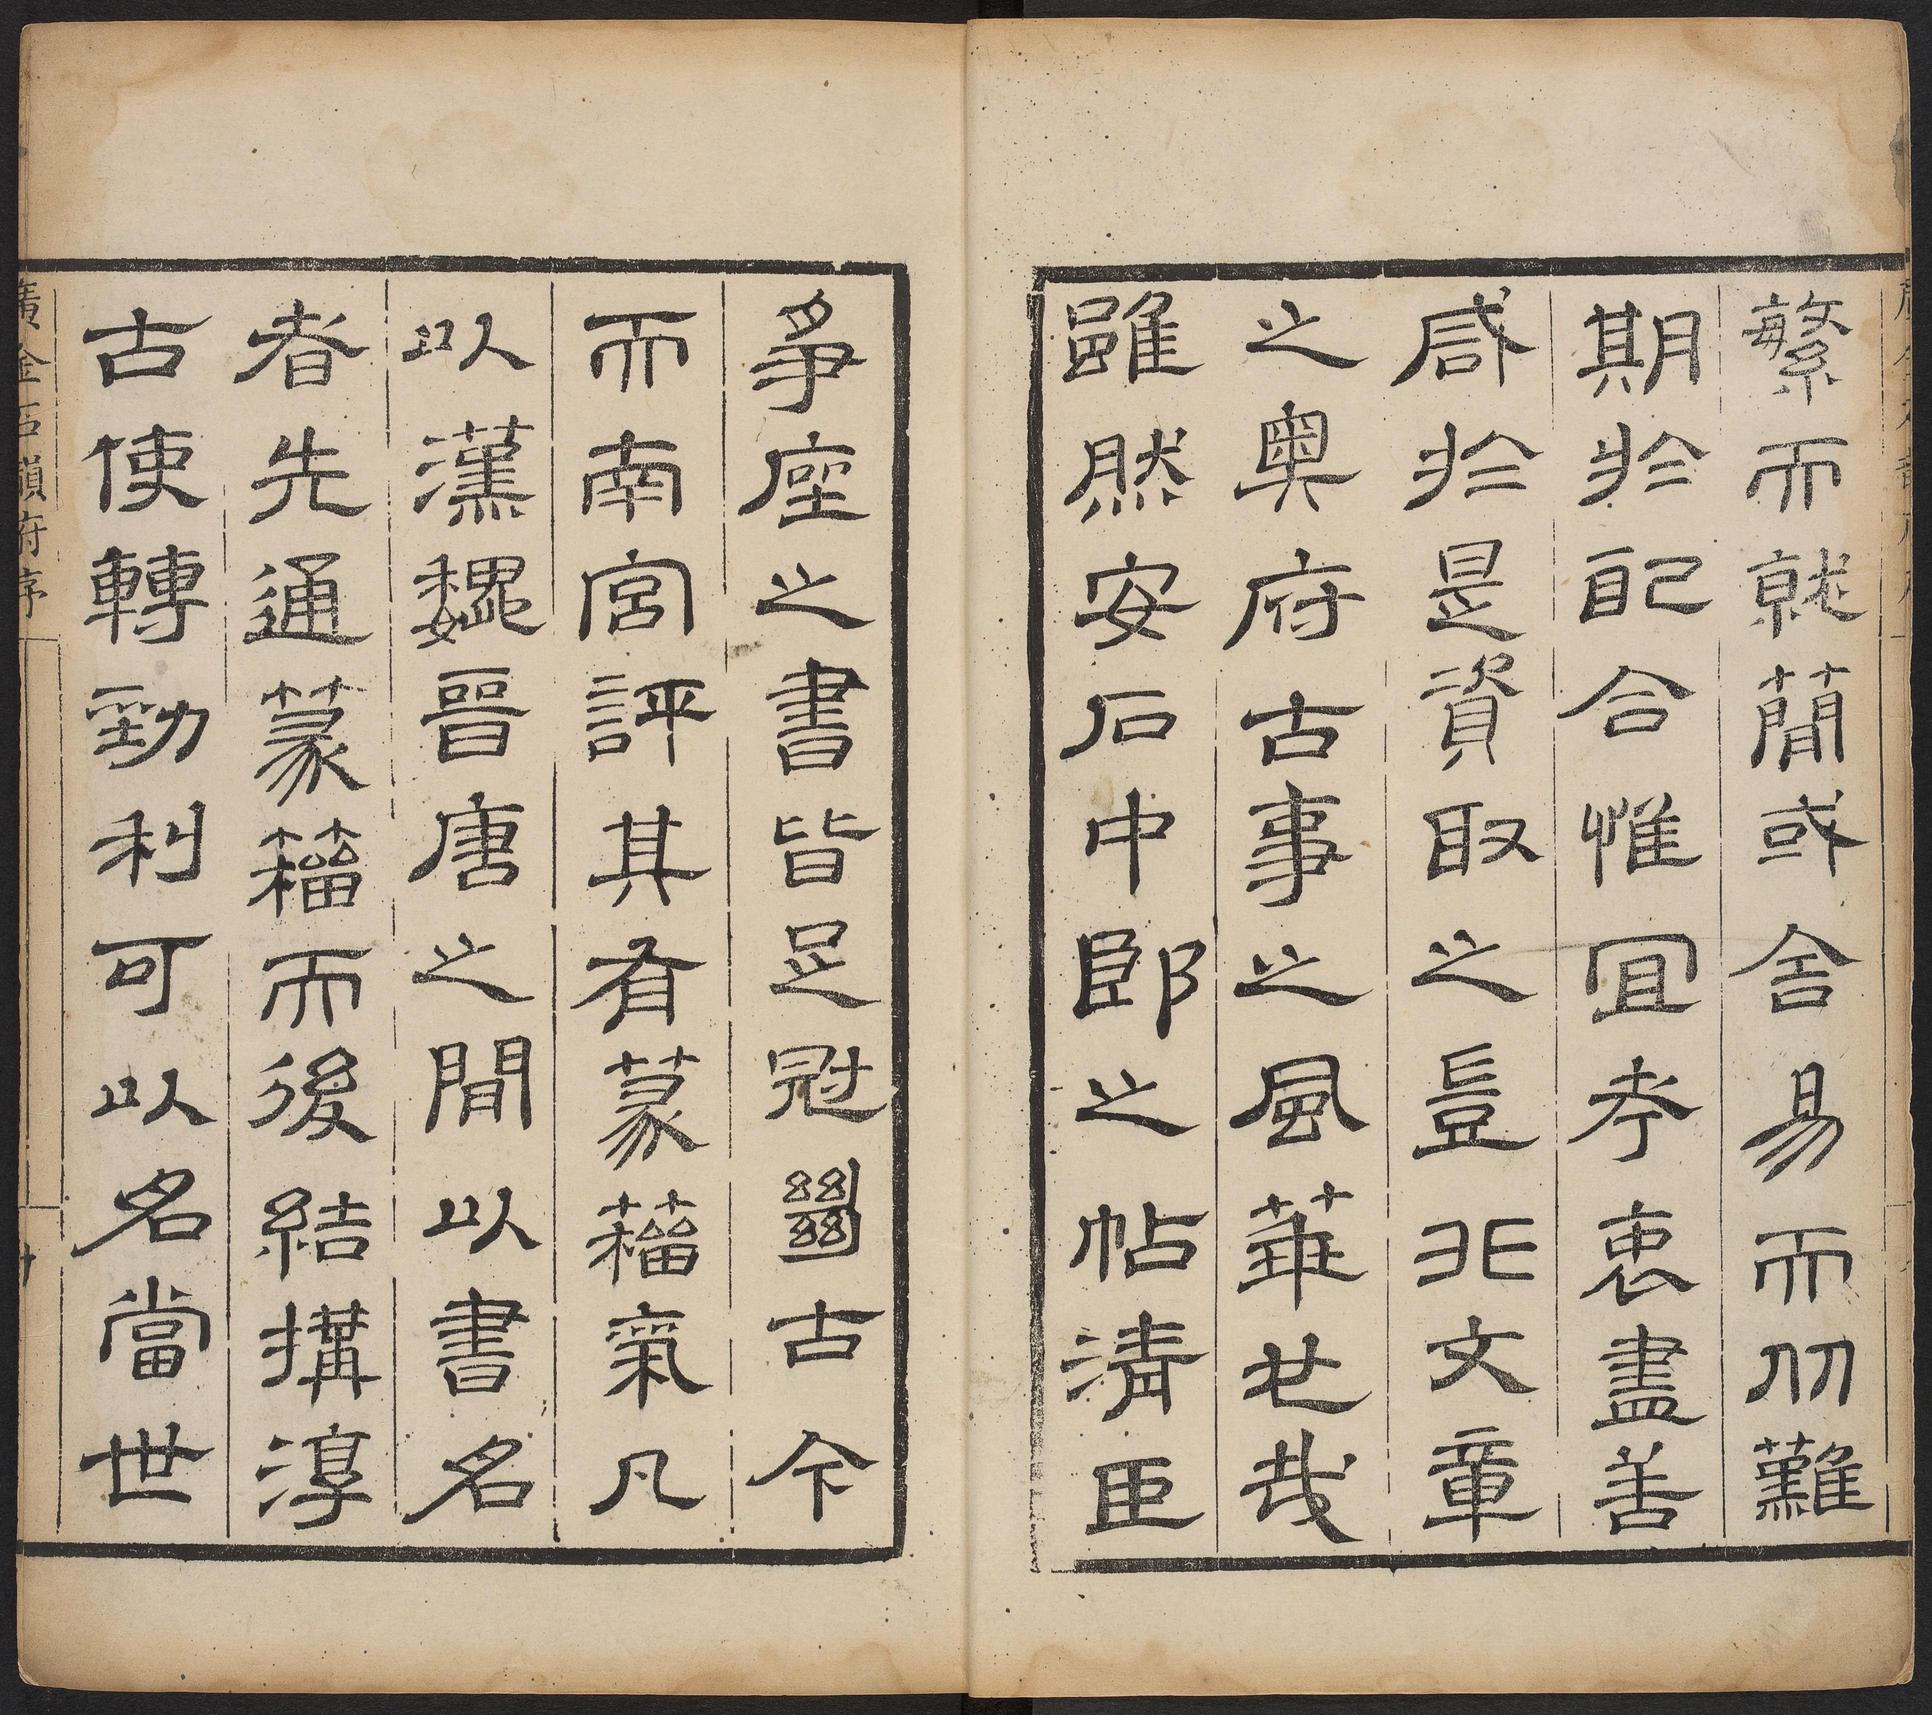 繁而就簡或舍易而從難
期於配合惟宜孝衷盡善
咸於是資取之豈非文章
之奧府古事之風華也哉
雖然安石中郎之帖清臣
爭座之書皆足冠㡭古今
而南宮評其有篆籀氣凡
以漢魏晉唐之間以書名
者先通篆籀而後結搆淳
古使轉勁利可以名當世
廣金石韻府序